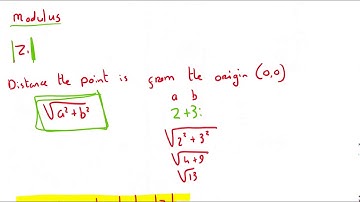 Modulus
|z|
Distance the point is from the origin (0,0)
√a²+b²
a b
2+3i
√2²+3²
√4+9
√13